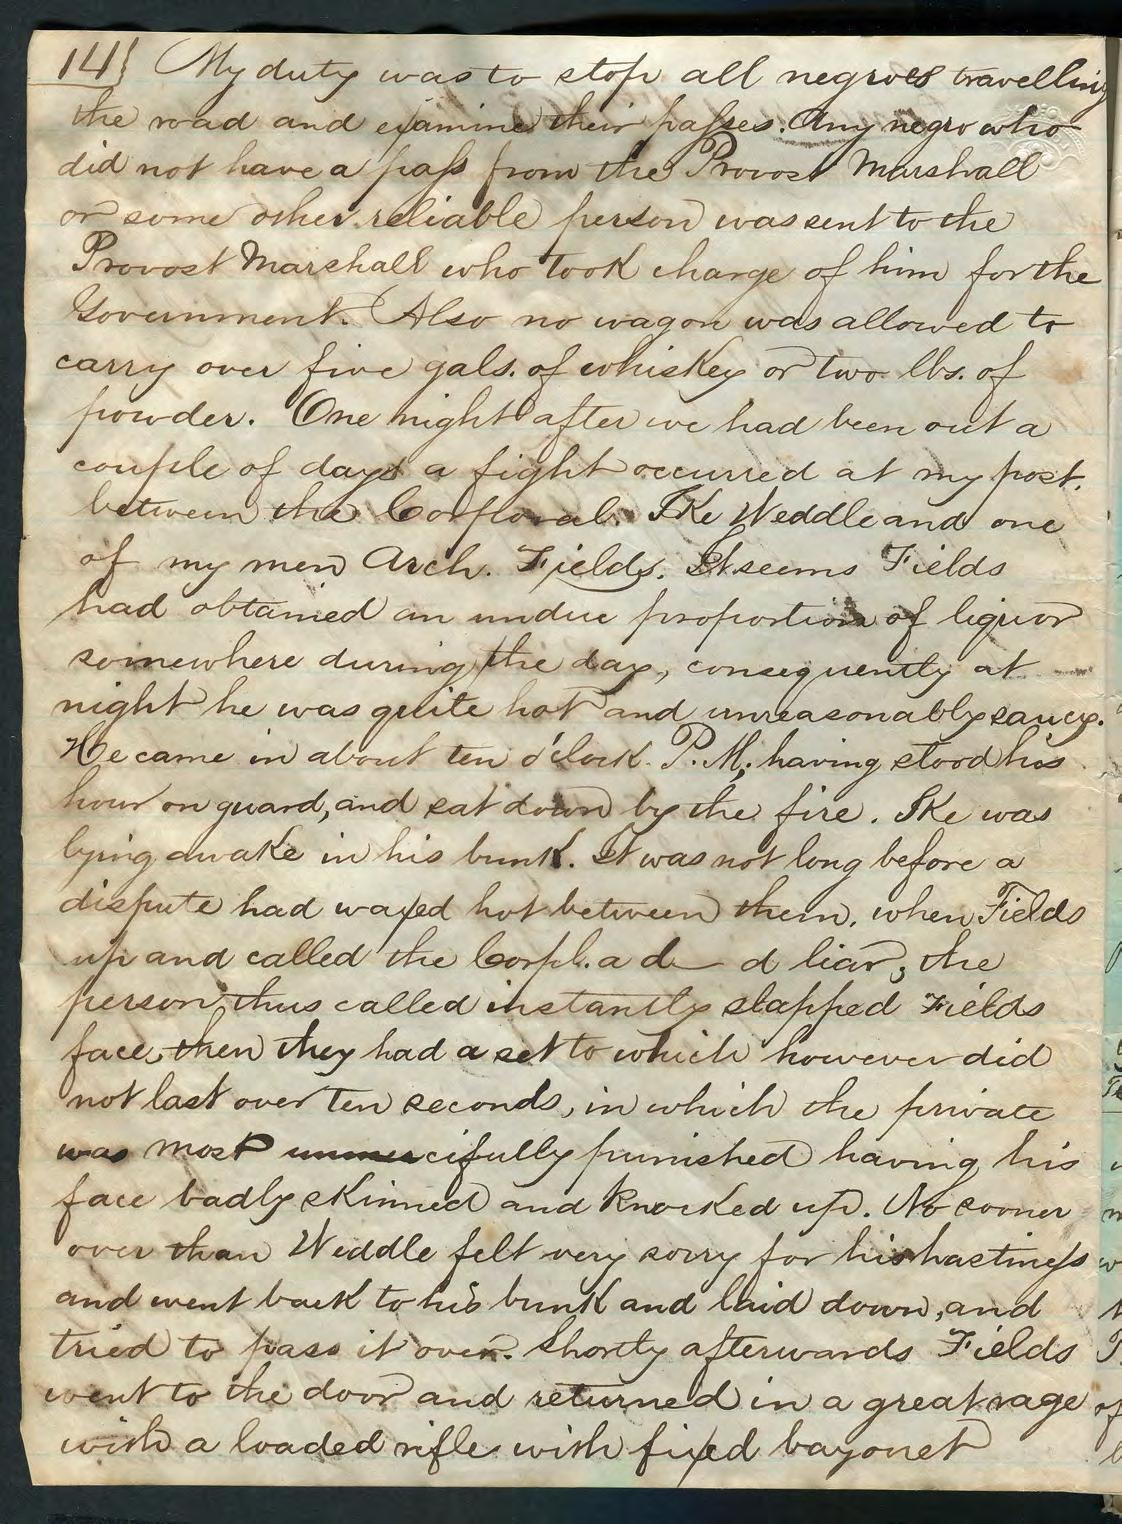 14} My duty was to stop all negroes travelling
the road and examine their passes. Any negro who
did not have a pass from the Provost Marshall
or some other reliable person was sent to the
Provost Marshall who took charge of him for the
Government. Also no wagon was allowed to
carry over five gals. of whiskey or two lbs. of
powder. One night after we had been out a
couple of days a fight occurred at my post.
between the Corporal Ike Weddle and one
of my men Arch. Fields. It seems Fields
had obtained an undue proportion of liquor
somewhere during the day, consequently at
night he was quite hot and unreasonably saucy.
He came in about ten o'clock P.M; having stood his
hour on guard, and sat down by the fire. Ike was
lying awake in his bunk. It was not long before a
dispute had waxed hot between them, when Fields
up and called the Corpl. a d— d liar; the
person thus called instantly slapped Fields
face, then they had a set to which however did
not last over ten seconds, in which the private
was most unmercifully punished having his
face badly skinned and knocked up. No sooner
over than Weddle felt very sorry for his hastiness
and went back to his bunk and laid down, and
tried to pass it over. Shortly afterwards Fields
went to the door and returned in a great rage
with a loaded rifle with fixed bayonet